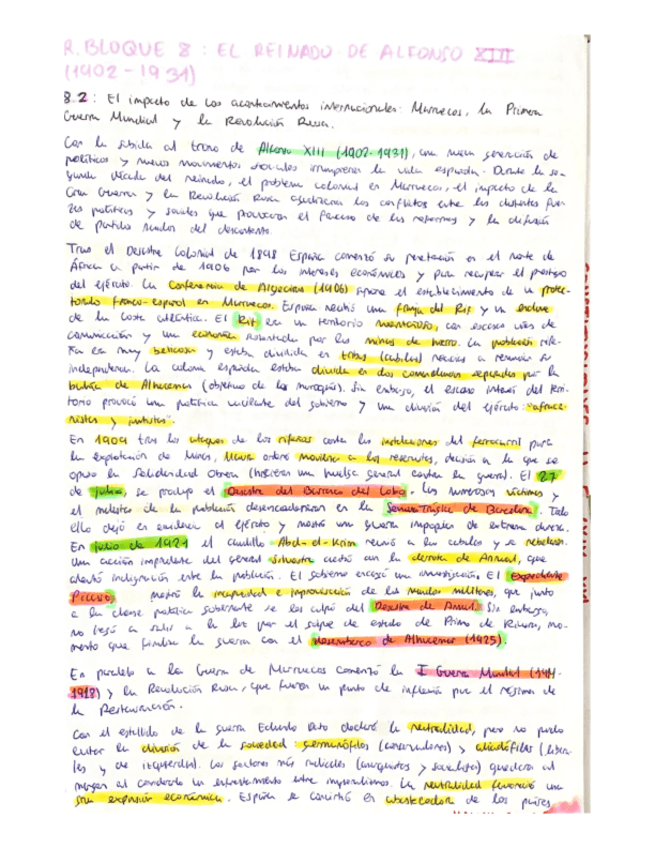 R. BLOQUE 8: EL REINADO DE ALFONSO XIII
(1902-1931)
8.2: El impacto de los acontecimientos internacionales: Marruecos, la Primera
Guerra Mundial y la Revolución Rusa.
Con la subida al trono de Alfonso XIII (1902-1931), una nueva generación de
políticos y nuevos movimientos sociales irrumpieron la vida española. Durante la se-
gunda década del reinado, el problema colonial en Marruecos, el impacto de la
Gran Guerra y la Revolución Rusa agudizaron los conflictos entre las distintas fuer-
zas políticas y sociales que provocaron el fracaso de las reformas y la difusión
de partidos del descontento.
Tras el Desastre Colonial de 1898 España comenzó su penetración en el norte de
África a partir de 1906 por los intereses económicos y para recuperar el prestigio
del ejército. La Conferencia de Algeciras (1906) el establecimiento de un protec-
torado franco-español en Marruecos. España recibió una franja del Rif y un enclave
de la costa atlántica. El Rif era un territorio montañoso, con escasas vías de
comunicación y una economía sustentada por las minas de hierro. La población rife-
ña era muy belicosa y estaba dividida en tribus (cabilas) reacias a renunciar su
independencia. La colonia española estaba dividida en dos comandancias separadas por la
bahía de Alhucemas (objetivo de los marroquís). Sin embargo, el escaso interés del terri-
torio provocó una política vacilante del gobierno y una división del ejército: "africa-
nistas y juntistas".
En 1909 tras los ataques de los rifeños contra las instalaciones del ferrocarril para
la explotación de minas, Maura ordenó movilizar a los reservistas, decisión a la que se
opuso la Solidaridad Obrera (hicieron una huelga general contra la guerra). El 27
de julio, se produjo el Desastre del Barranco del Lobo. Las numerosas víctimas y
el malestar de la población desencadenaron en la Semana Trágica de Barcelona. Todo
ello dejó en evidencia al ejército y mostró una guerra impropia de extrema dureza.
En julio de 1921 el caudillo Abd-el-Krim reunió a las cabilas y se rebelaron.
Una acción imprudente del general Silvestre acabó con la derrota de Annual, que
alentó indignación entre la población. El gobierno encargó una investigación. El Expediente
Picasso, mostró la incapacidad e improvisación de los mandos militares, que junto
a la clase política gobernante se les culpó del Desastre de Annual. Sin embargo,
no llegó a salir a la luz por el golpe de estado de Primo de Rivera, mo-
mento que finaliza la guerra con el desembarco de Alhucemas (1925).
En paralelo a la Guerra de Marruecos comenzó la I Guerra Mundial (1914-
1918) y la Revolución Rusa, que fueron un punto de inflexión para el régimen de
la Restauración.
Con el estallido de la guerra Eduardo Dato declaró la neutralidad, pero no pudo
evitar la división de la sociedad: germanófilos (conservadores) y aliadófilos (libera-
les y de izquierdas). Los sectores más radicales (anarquistas y socialistas) quedaron al
margen al considerarlo un enfrentamiento entre imperialismos. La neutralidad favoreció una
gran expansión económica. España se convirtió en abastecedora de los países